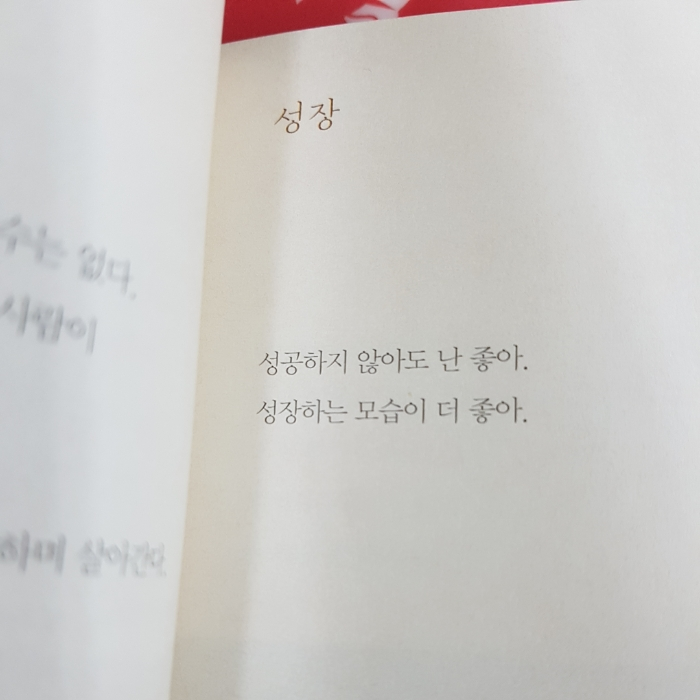 수는 없다.
사람이
하며 살아간다.
성장
성공하지 않아도 난 좋아.
성장하는 모습이 더 좋아.